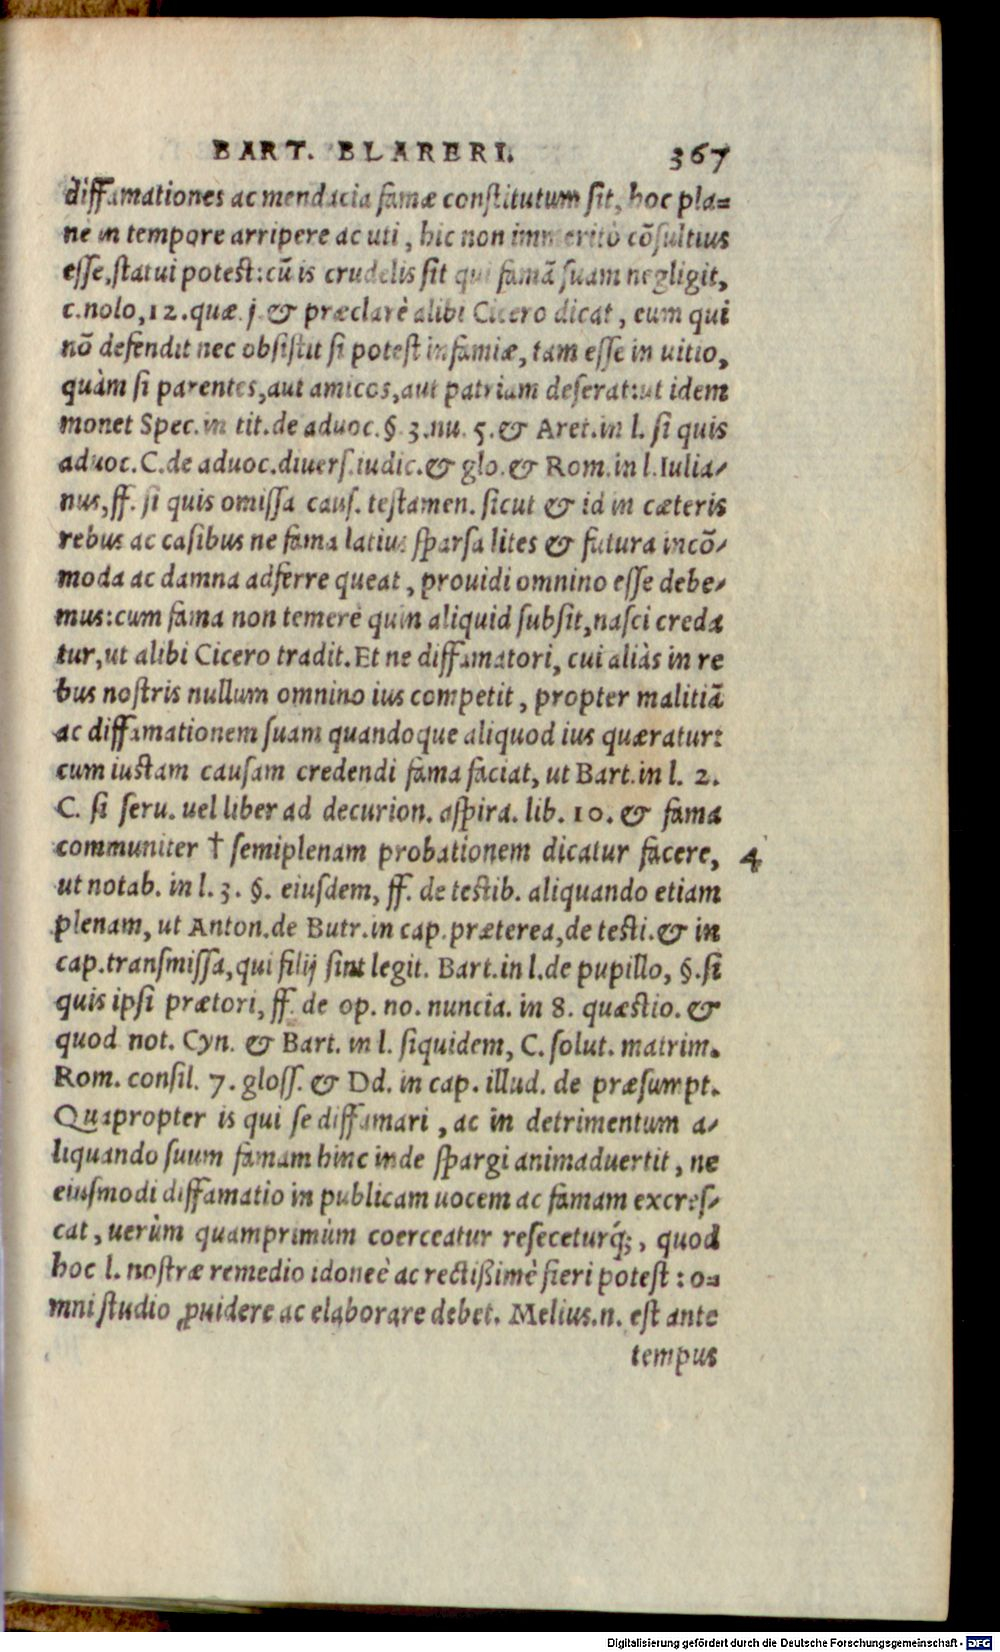 BART. BLARERI. 367
diffamationes ac mendacia famæ constitutum sit, hoc pla=
ne in tempore arripere ac uti, hic non immerito cõsultius
esse, statui potest: cũ is crudelis sit qui famã suam negligit,
c. nolo, 12. quæ. j. & præclarè alibi Cicero dicat, eum qui
nõ defendit nec obsistit si potest infamiæ, tam esse in uitio,
quàm si parentes, aut amicos, aut patriam deserat: ut idem
monet Spec. in tit. de aduoc. §. 3. nu. 5. & Aret. in l. si quis
aduoc. C. de aduoc. diuers. iudic. & glo. & Rom. in l. Iulia-
nus, ff. si quis omissa caus. testamen. sicut & id in cæteris
rebus ac casibus ne fama latius sparsa lites & futura incõ-
moda ac damna adferre queat, prouidi omnino esse debe-
mus: cum fama non temerè quin aliquid subsit, nasci creda
tur, ut alibi Cicero tradit. Et ne diffamatori, cui aliàs in re
bus nostris nullum omnino ius competit, propter malitiã
ac diffamationem suam quandoque aliquod ius quæratur:
cum iustam causam credendi fama faciat, ut Bart. in l. 2.
C. si seru. uel liber ad decurion. aspira. lib. 10. & fama
communiter † semiplenam probationem dicatur facere, 4
ut notab. in l. 3. §. eiusdem, ff. de testib. aliquando etiam
plenam, ut Anton. de Butr. in cap. præterea, de testi. & in
cap. transmissa, qui filij sint legit. Bart. in l. de pupillo, §. si
quis ipsi prætori, ff. de op. no. nuncia. in 8. quæstio. &
quod not. Cyn. & Bart. in l. siquidem, C. solut. matrim.
Rom. consil. 7. gloss. & Dd. in cap. illud. de præsumpt.
Quapropter is qui se diffamari, ac in detrimentum a-
liquando suum famam hinc inde spargi animaduertit, ne
eiusmodi diffamatio in publicam uocem ac famam excres-
cat, uerùm quamprimùm coerceatur reseceturq́;, quod
hoc l. nostræ remedio idoneè ac rectißimè fieri potest: o=
mni studio ꝓuidere ac elaborare debet. Melius .n. est ante
tempus
Digitalisierung gefördert durch die Deutsche Forschungsgemeinschaft - DFG